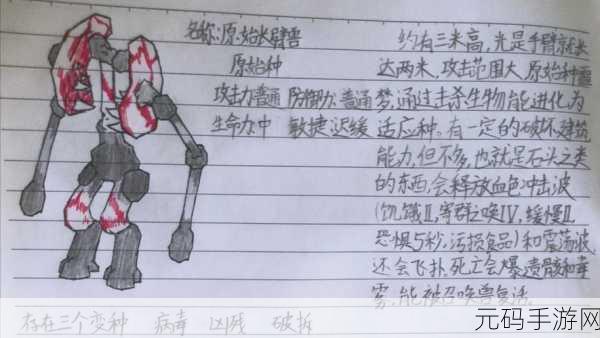 名称:原始长臂兽
原始种
攻击力普通 防御力:普通
生命力:中 敏捷:迟缓
约有三米高,光是手臂就长
达两米,攻击范围大,原始种
梦,通过击杀生物能进化为
适应种。有一定的破坏建筑
能力,但不多,也就是石头之类
的东西,会释放血色冲击波
(饥饿II,寄群之唤IV,缓慢II
恐惧5秒,污损食品)和震荡波
还会飞扑,死亡会爆遗骸和毒
雾,能被召唤兽复活.
存在三个变种 病毒 凶残 破拆
元码手游网